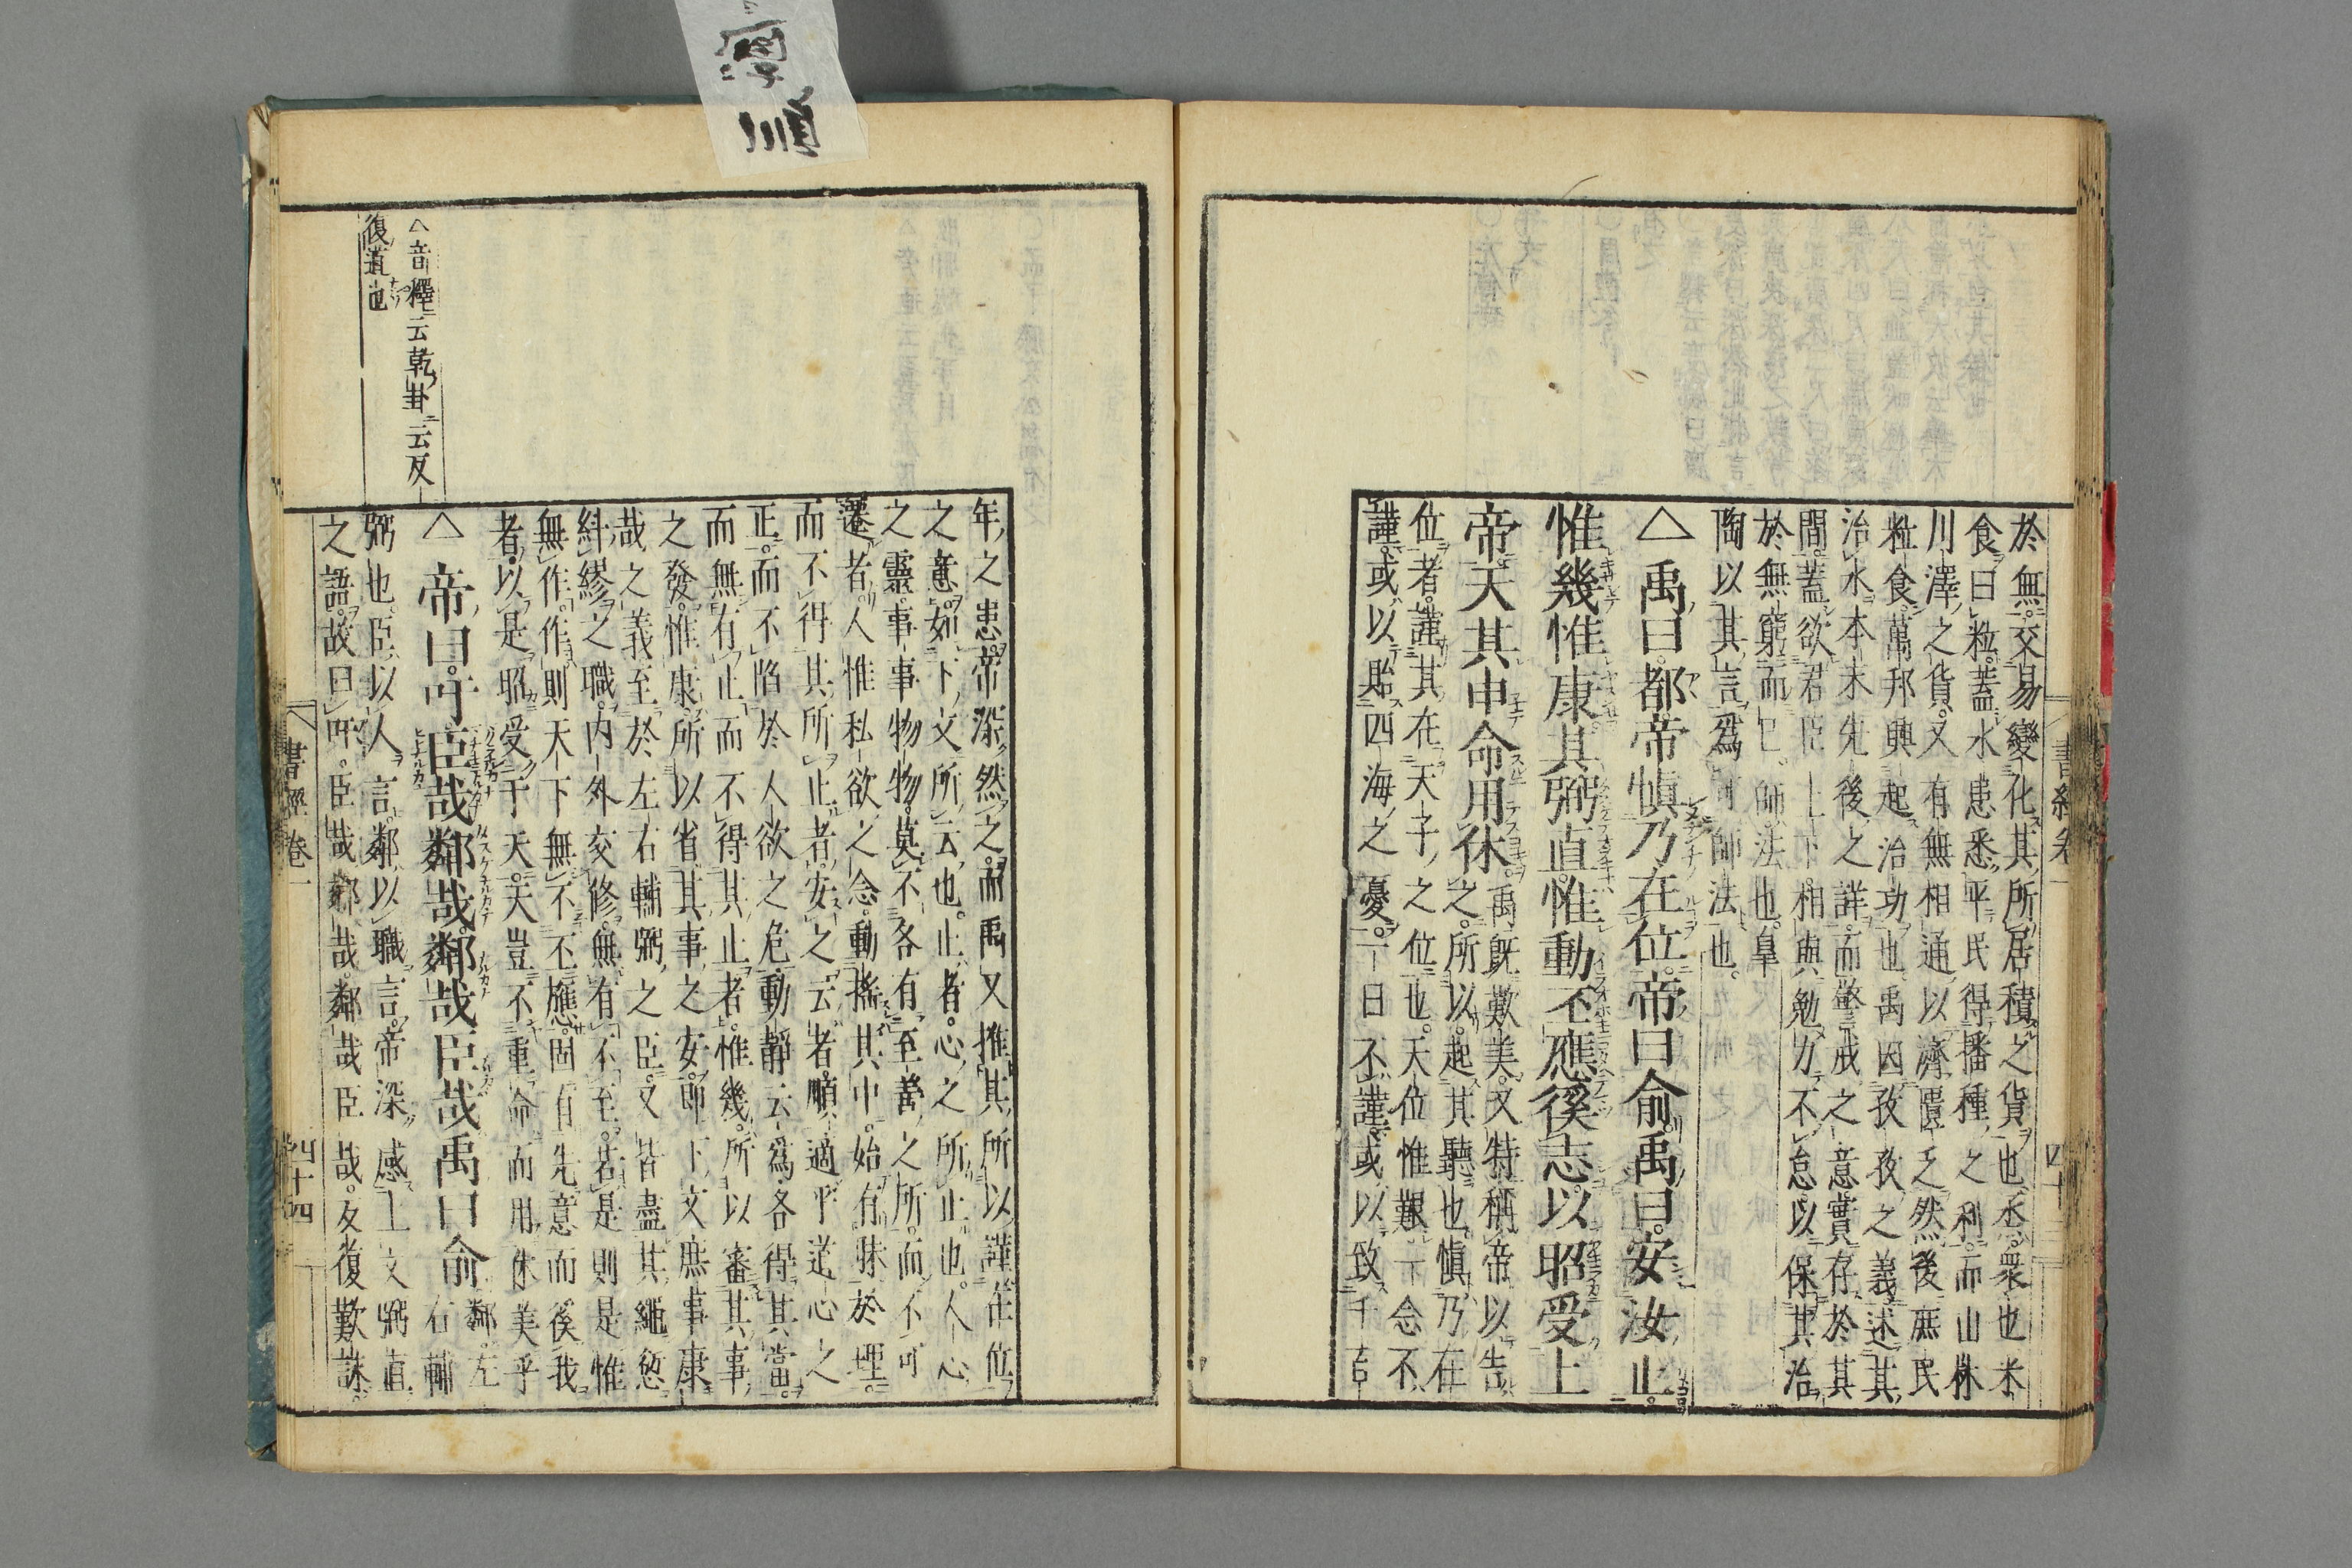 於無交易變化其所居積之貨也烝衆也米
食曰粒蓋水患悉平民得播種之利而山林
川澤之貨又有無相通以濟匱乏然後庶民
粒食萬邦興起治功也禹因孜孜之義述其
治水本末先後之詳而警戒之意實存於其
間蓋欲君臣上下相與勉力不怠以保其治
於無窮而已師法也皐
陶以其言爲可師法也
△禹曰都帝愼乃在位帝曰俞禹曰安汝止
惟幾惟康其弼直惟動丕應徯志以昭受上
帝天其申命用休
禹旣歎美又特稱帝以告
之所以起其聽也愼乃在
位者謹其在天子之位也天位惟艱一念不
謹或以貽四海之憂一日不謹或以致千百
書經卷一
年之患帝深然之而禹又推其所以謹在位
之意如下文所云也止者心之所止也人心
之靈事事物物莫不各有至善之所而不可
遷者人惟私欲之念動搖其中始有昧於理
而不得其所止者安之云者順適乎道心之
正而不陷於人欲之危動靜云爲各得其當
而無有止而不得其止者惟幾所以審其事
之發惟康所以省其事之安卽下文庶事康
哉之義至於左右輔弼之臣又皆盡其繩愆
糾繆之職内外交修無有不至若是則是惟
無作作則天下無不丕應固有先意而徯我
者以是昭受于天天豈不重命而用休美乎
△帝曰吁臣哉鄰哉鄰哉臣哉禹曰俞
鄰左
右輔
弼也臣以人言鄰以職言帝深感上文弼直
之語故曰吁臣哉鄰哉鄰哉臣哉反復歎詠
△音釋云乾卦云反
復道也
書經卷一
四十四